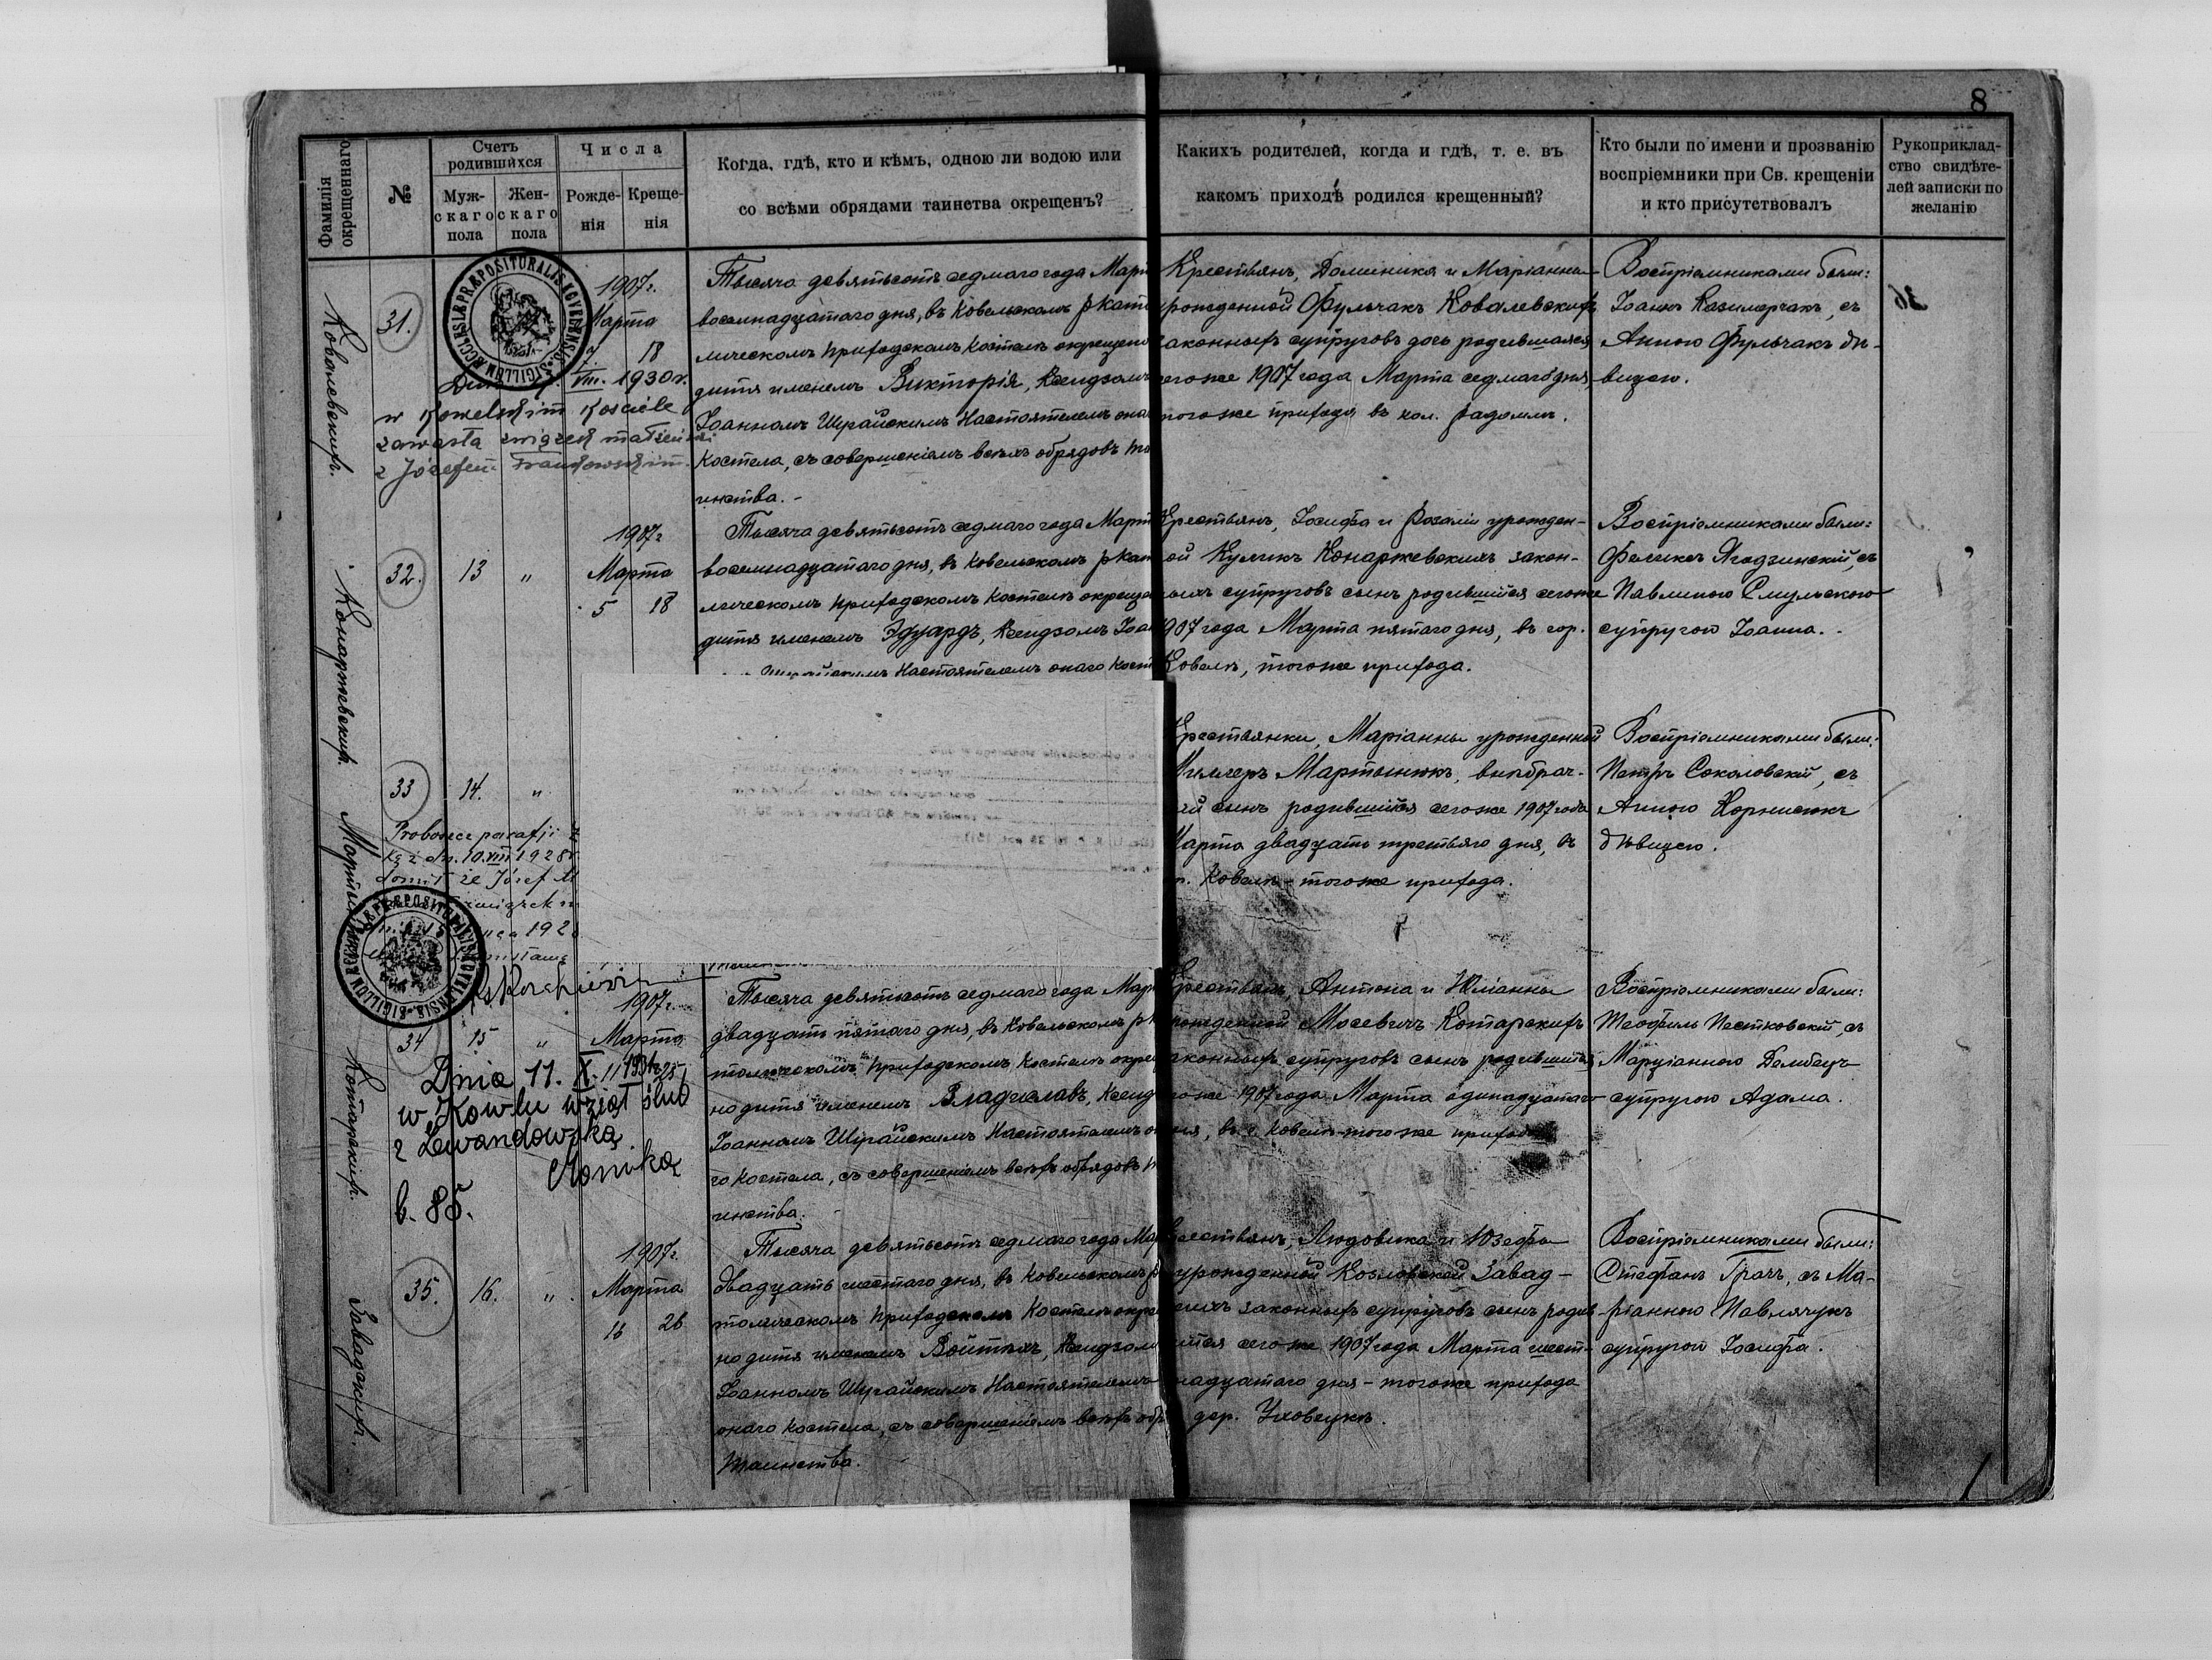 8
Фамилія окрещеннаго
№
Счетъ родившихся
Муж-
скаго
пола
Жен-
скаго
пола
Числа
Рожде-
нія
Креще-
нія
Когда, гдѣ, кто и кѣмъ, одною ли водою или
со всѣми обрядами таинства окрещенъ?
Какихъ родителей, когда и гдѣ, т. е. въ
какомъ приходѣ родился крещенный?
Кто были по имени и прозванію
воспріемники при Св. крещеніи
и кто присутствовалъ
Рукоприклад-
ство свидѣте-
лей записки по
желанію
Ковалевскихъ.
31.
1907г.
Марта
7 18
VIII. 1930 r.
w Kowelskim Kościele
zawarła związek małżeński
z Józefem
Тысяча девятьсотъ седмаго года Мар
восемнадцатаго дня, въ Ковельскомъ р кат
лическомъ приходскомъ костелѣ окрещено
дитя именемъ Викторія, Ксендзомъ
Іоанномъ Шрайскимъ Настоятелемъ она
костела, съ совершеніемъ всѣхъ обрядовъ та
инства. -
Крестьянъ, Доминика и Маріанны
урожденной Фульчакъ Ковалевскихъ
законныхъ супруговъ дочь родившаяся
сегоже 1907 года Марта седмаго дня
тогоже прихода въ кол. Радомлѣ.
Воспріемниками были:
Іоаннъ Казимерчакъ, съ
Анною Фульчакъ дѣ-
вицею.
Конаржевскихъ.
32.
13 "
1907г
Марта
5 18
Тысяча девятьсотъ седмаго года Март
восемнадцатаго дня, въ Ковельскомъ р кат
лическомъ приходскомъ костелѣ окреще
дитя именемъ Эдуардъ, Ксендзомъ Іоа
Настоятелемъ онаго кост
Крестьянъ, Іосифа и Розаліи урожден-
ой Куликъ Конаржевскихъ закон-
ныхъ супруговъ сынъ родившійся сегоже
907 года Марта пятаго дня, въ гор.
Ковелѣ, тогоже прихода.
Воспріемниками были:
Феликсъ Ягодзинскій, съ
Павлиною Смульскою
супругою Іоанна.
33
14. "
Proboszcz parafji
dn. 10.VIII 1928 r.
że Józef M
związek m
192
Крестьянки, Маріанны урожденной
Миллеръ Мартынюкъ, внѣбрач-
ый сынъ родившійся сегоже 1907 года
Марта двадцать третьяго дня, въ
г. Ковелѣ - тогоже прихода.
Воспріемниками были:
Петръ Соколовскій, съ
Анною Корнилюкъ
дѣвицею.
Котарскихъ.
34
15 "
1907г.
Марта
11 25
Dnia 11. X. 1931 r.
w Kowlu wziął ślub
z Lewandowską
Moniką
l. 85.
Тысяча девятьсотъ седмаго года Мар
двадцать пятаго дня, въ Ковельскомъ р к
толическомъ приходскомъ костелѣ окре
но дитя именемъ Владиславъ, Ксенд
Іоанномъ Шрайскимъ Настоятелемъ о
го костела, съ совершеніемъ всѣхъ обрядовъ т
инства.
Крестьянъ, Антона и Юліанны
рожденной Мосевичъ Котарскихъ
аконныхъ супруговъ сынъ родившійся
гоже 1907 года Марта одинадцатаго
ня, въ г. Ковелѣ тогоже прихода
Воспріемниками были:
Теофиль Пестковскій, съ
Марціанною Дембецъ
супругою Адама.
Завадскихъ.
35.
16. "
1907г.
Марта
16 26
Тысяча девятьсотъ седмаго года Ма
двадцать шестаго дня, въ Ковельскомъ р
толическомъ приходскомъ костелѣ окре
но дитя именемъ Войтѣхъ, Ксендзом
Іоанномъ Шрайскимъ Настоятелемъ
онаго костела, съ совершеніемъ всѣхъ обр
таинства.
Крестьянъ, Людовика и Юзефы
урожденной Козловской Завад-
скихъ законныхъ супруговъ сынъ родив
шійся сегоже 1907 года Марта шест-
надцатаго дня - тогоже прихода
дер. Уховецкъ.
Воспріемниками были:
Стефанъ Грачъ, съ Ма-
ріанною Павлячукъ
супругою Іосифа.